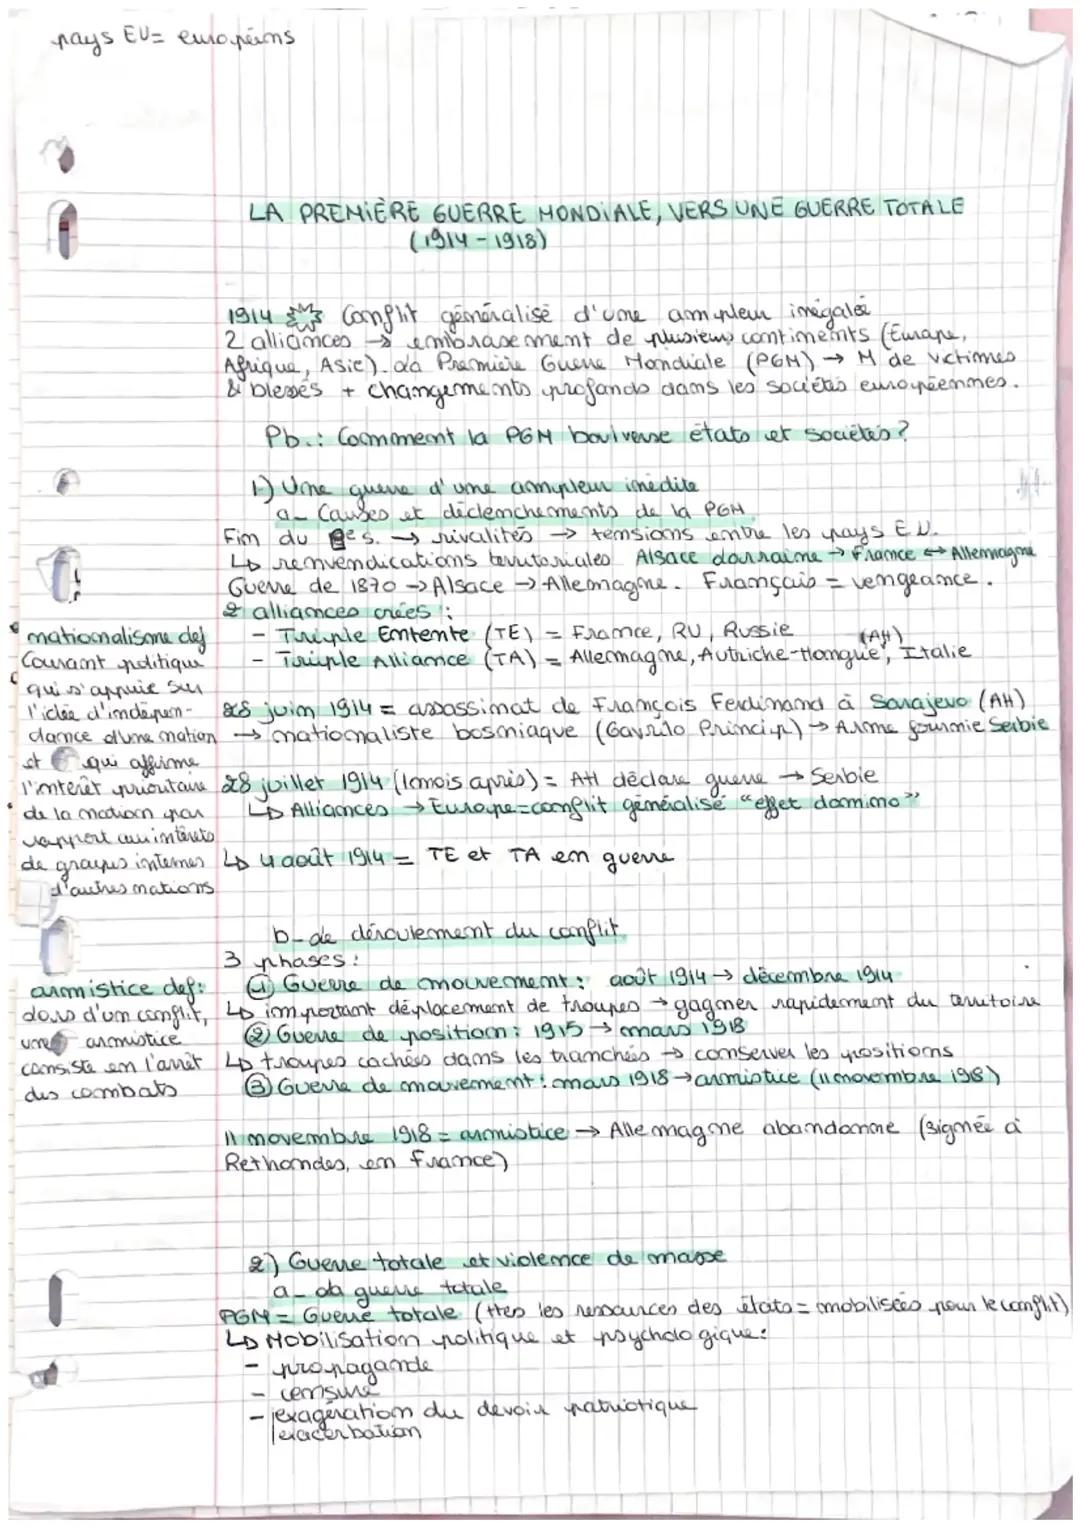 pays EU= européens
LA PREMIÈRE GUERRE MONDIALE, VERS UNE GUERRE TOTALE
(1914-1918)
1914 Conflit généralisé d'une ampleur inégalée
2 alliances → embrasement de plusieurs continents (Europe,
Afrique, Asie). La Première Guerre Mondiale (PGM) → M de victimes
& blessés + changements profonds dans les sociétés européennes.
Pb.: Comment la PGM boulverse états et sociétés?
1) Une guerre d'une ampleur inédite
a- Causes et déclenchements de la PGM
Fin du s. → rivalités → tensions entre les pays EU.
↳ renvendications territoriales Alsace Lorraine → France ↔ Allemagne
Guerre de 1870 → Alsace → Allemagne. Français = vengeance.
2 alliances crées :
- Triple Entente (TE) = France, RU, Russie
- Triple Alliance (TA) = Allemagne, Autriche-Hongrie (AH), Italie
nationalisme def
Courant politique
qui s'appuie sur
l'idée d'indépen-
dance d'une nation
et qui affirme
l'intérêt prioritaire
de la nation par
rapport aux intérêts
de groupes internes
d'autres nations
28 juin 1914 = assassinat de François Ferdinand à Sarajevo (AH)
→ nationaliste bosniaque (Gavrilo Princip) → Arme fournie Serbie
28 juillet 1914 (1 mois après) = AH déclare guerre → Serbie
↳ Alliances → Europe = conflit généralisé "effet domino"
↳ 4 août 1914 = TE et TA en guerre
b- Le déroulement du conflit
3 phases :
① Guerre de mouvement : août 1914 → décembre 1914
↳ important déplacement de troupes → gagner rapidement du territoire
② Guerre de position : 1915 → mars 1918
↳ troupes cachées dans les tranchées → conserver les positions
③ Guerre de mouvement : mars 1918 → armistice (11 novembre 1918)
armistice def:
Lors d'un conflit,
une armistice
consiste en l'arrêt
des combats
11 novembre 1918 = armistice → Allemagne abandonne (signée à
Rethondes, en France)
2) Guerre totale et violence de masse
a- La guerre totale
PGM = Guerre totale (ttes les ressources des états = mobilisées pour le conflit)
↳ Mobilisation politique et psychologique :
- propagande
- censure
- exagération du devoir patriotique
exacerbation